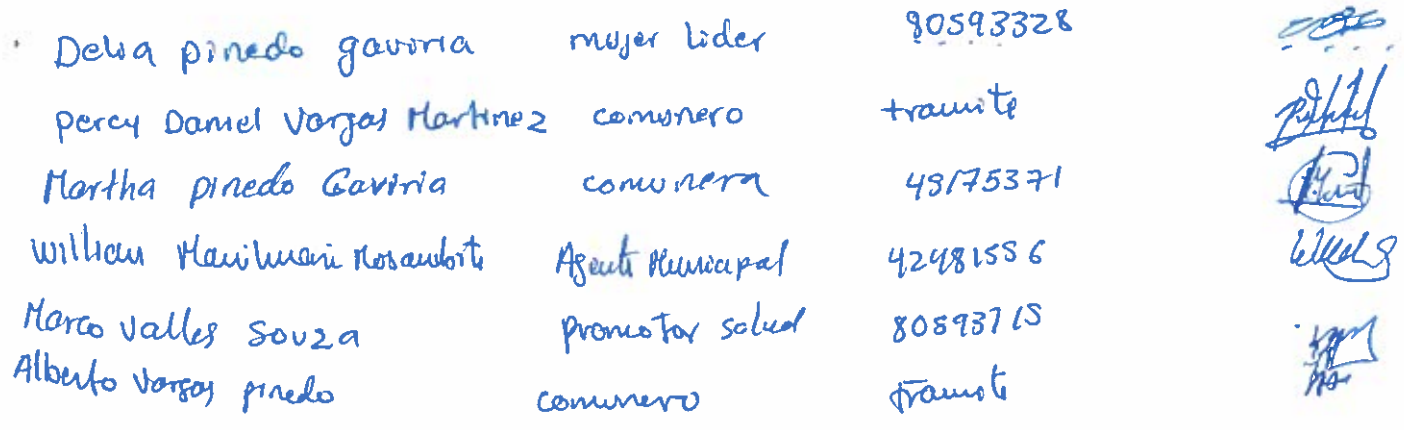 Delia pinedo gaviria mujer lider 80593328
percy Daniel Vargas Martinez comunero tramite
Martha pinedo Gaviria comunera 48175371
William Agente Municipal 42481556
Marco Valles Souza promotor salud 80593715
Alberto Vargas pinedo comunero tramite